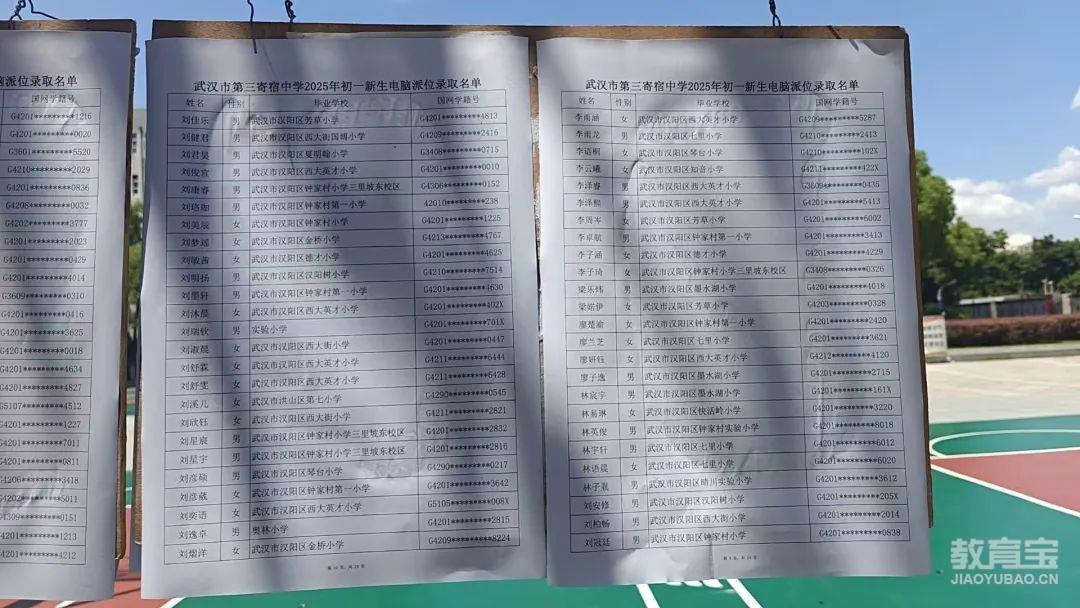 脑派位录取名单
国网学籍号
G4201*********1216
G4201*********0020
G3601*********5520
G4210*********2029
G4201*********0836
G4208*********0032
G4202*********3777
G4201*********2023
G4201*********0429
G4201*********4014
G3609*********0310
G4201*********0416
G4201*********3625
G4201*********0018
G4201*********4634
G4201*********4827
G5107*********4512
G4201*********1227
G4201*********7011
G4201*********0811
G4206*********3418
G4202*********5011
G4309*********0151
G4201*********1213
G4201*********4212
武汉市第三寄宿中学2025年初一新生电脑派位录取名单
姓名 性别 毕业学校 国网学籍号
刘佳乐 男 武汉市汉阳区芳草小学 G4201*********4813
刘健君 男 武汉市汉阳区西大街国博小学 G4209*********2416
刘君昊 男 武汉市汉阳区夏明翰小学 G3408*********0715
刘俊宜 男 武汉市汉阳区西大英才小学 G4201*********0010
刘康睿 男 武汉市汉阳区钟家村小学三里坡东校区 G4306*********0152
刘珞珈 男 武汉市汉阳区钟家村第一小学 42010*********238
刘美辰 女 武汉市汉阳区钟家村小学 G4201*********1225
刘梦瑶 女 武汉市汉阳区金桥小学 G4213*********4767
刘敏茜 女 武汉市汉阳区德才小学 G4201*********4625
刘明扬 男 武汉市汉阳区汉阳树小学 G4210*********7514
刘墨轩 男 武汉市汉阳区钟家村第一小学 G4201*********4630
刘沐晨 女 武汉市汉阳区西大英才小学 G4201*********402X
刘瑞钦 男 实验小学 G4201*********701X
刘淑晨 女 武汉市汉阳区西大街小学 G4201*********0447
刘舒霖 女 武汉市汉阳区西大英才小学 G4211*********6444
刘舒雯 女 武汉市汉阳区西大英才小学 G4211*********6428
刘溪儿 女 武汉市洪山区第七小学 G4290*********0545
刘欣钰 女 武汉市汉阳区西大街小学 G4211*********2821
刘星宸 男 武汉市汉阳区钟家村小学三里坡东校区 G4201*********2832
刘星宇 男 武汉市汉阳区钟家村小学三里坡东校区 G4201*********2816
刘彦硕 男 武汉市汉阳区琴台小学 G4290*********0217
刘彦葳 女 武汉市汉阳区钟家村第一小学 G4201*********3642
刘奕语 女 武汉市汉阳区西大英才小学 G5105*********008X
刘逸卓 男 奥林小学 G4201*********2815
刘熠洋 女 武汉市汉阳区金桥小学 G4209*********8224
武汉市第三寄宿中学2025年初一新生电脑派位录取名单
姓名 性别 毕业学校 国网学籍号
李雨涵 女 武汉市汉阳区西大英才小学 G4209*********5287
李雨龙 男 武汉市汉阳区七里小学 G4210*********2413
李语桐 女 武汉市汉阳区琴台小学 G4210*********102X
李云曦 女 武汉市汉阳区知音小学 G4211*********422X
李泽睿 男 武汉市汉阳区西大英才小学 G3609*********0435
李泽熙 男 武汉市汉阳区西大英才小学 G4201*********5413
李周岑 女 武汉市汉阳区芳草小学 G4201*********6002
李卓航 男 武汉市汉阳区钟家村第一小学 G4201*********3413
李子涵 女 武汉市汉阳区德才小学 G4201*********4229
李子琦 女 武汉市汉阳区钟家村小学三里坡东校区 G3408*********0326
梁乐炜 男 武汉市汉阳区墨水湖小学 G4201*********4018
梁婼伊 女 武汉市汉阳区芳草小学 G4203*********0328
廖楚渝 女 武汉市汉阳区钟家村第一小学 G4201*********2420
廖兰芝 女 武汉市汉阳区七里小学 G4201*********3621
廖妍钰 女 武汉市汉阳区西大英才小学 G4212*********4120
廖子逸 男 武汉市汉阳区墨水湖小学 G4201*********2715
林宸宇 男 武汉市汉阳区墨水湖小学 G4201*********161X
林易琳 女 武汉市汉阳区快活岭小学 G4201*********3220
林英俊 男 武汉市汉阳区钟家村实验小学 G4201*********8018
林宇轩 男 武汉市汉阳区七里小学 G4201*********6012
林语晨 女 武汉市汉阳区七里小学 G4201*********6020
林子胤 男 武汉市汉阳区晴川实验小学 G4201*********3612
刘安修 男 武汉市汉阳区汉阳树小学 G4201*********205X
刘柏畅 男 武汉市汉阳区西大街小学 G4201*********2014
刘冠廷 男 武汉市汉阳区钟家村小学 G4201*********0838
教育宝
JIAOYUBAO.CN